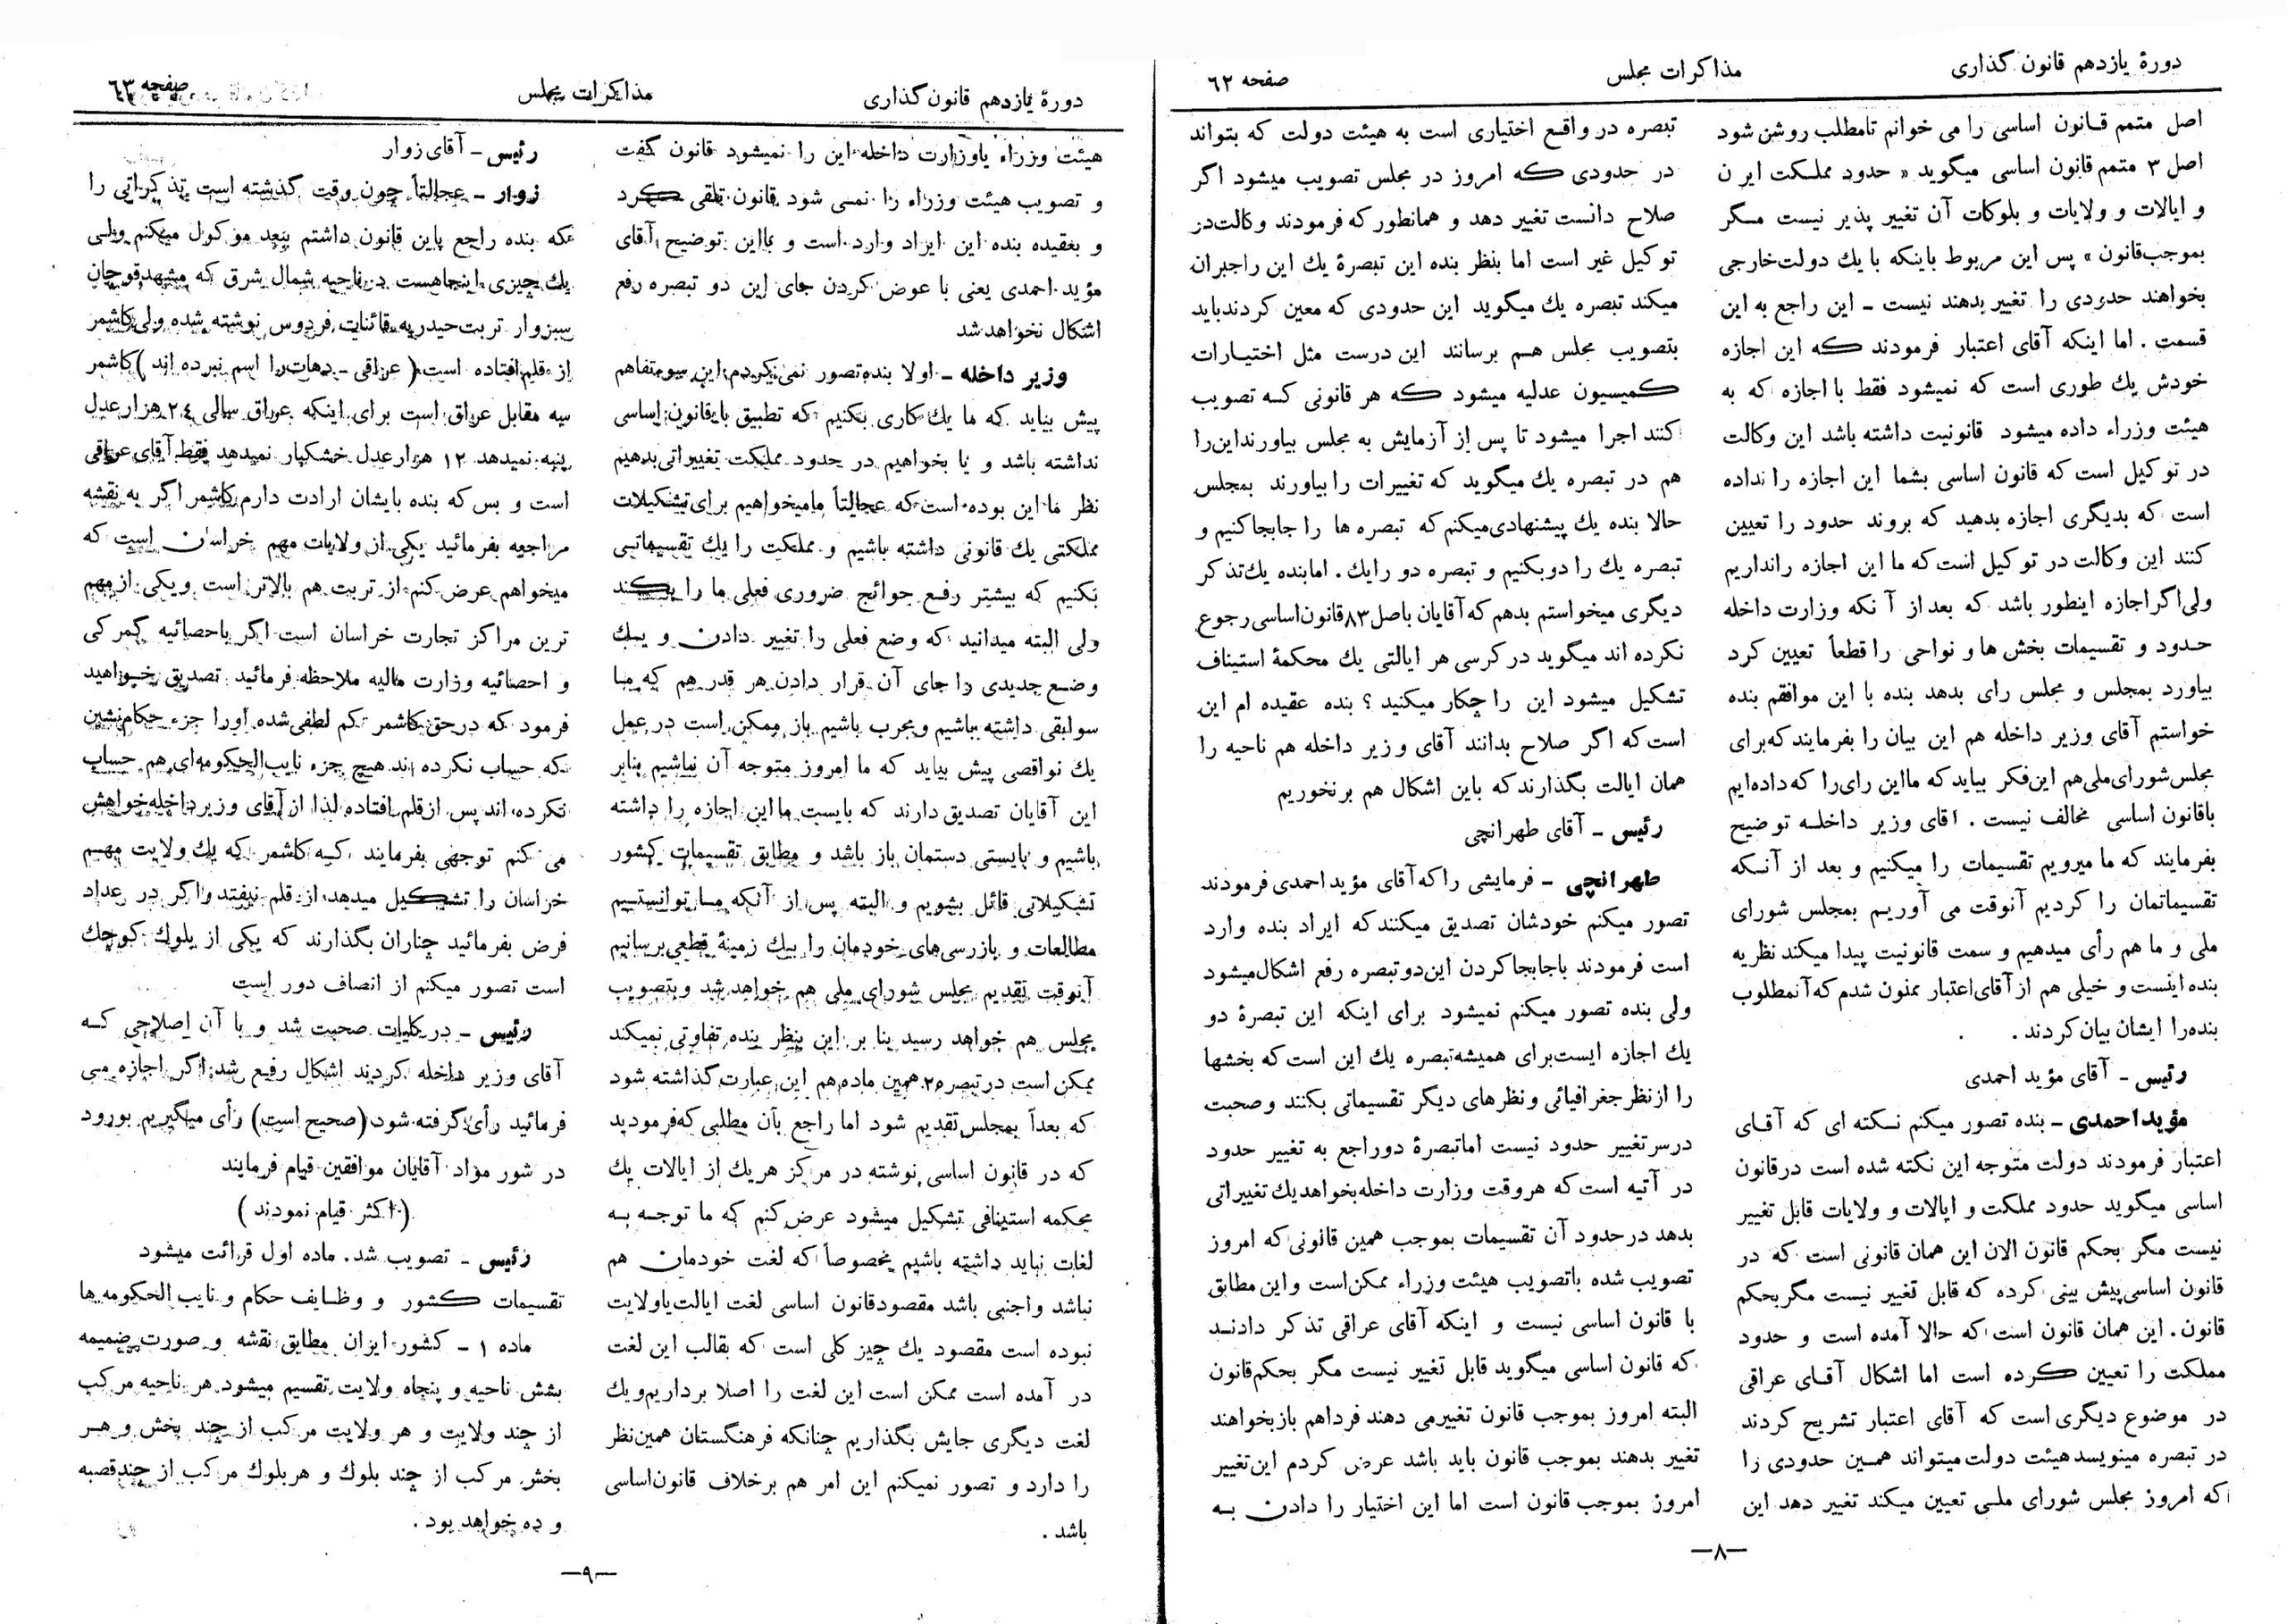 دورهٔ یازدهم قانون گذاری
مذاکرات مجلس
صفحه ۶۲
اصل متمم قـانون اساسی را می خوانم تامطلب روشن شود
اصل ۳ متمم قانون اساسی میگوید « حدود مملـکت ایر ن
و ایالات و ولایات و بلوکات آن تغییر پذیر نیست مـگر
بموجب‌قانون » پس این مربوط باینکه با یك دولت‌خارجی
بخواهند حدودی را تغییر بدهند نیست ـ این راجع به این
قسمت . اما اینکه آقای اعتبار فرمودند که این اجازه
خودش یك طوری است که نمیشود فقط با اجازه که به
هیئت وزراء داده میشود قانونیت داشته باشد این وکالت
در توکیل است که قانون اساسی بشما این اجازه را نداده
است که بدیگری اجازه بدهید که بروند حدود را تعیین
کنند این وکالت در توکیل است‌که ما این اجازه رانداریم
ولی‌اگر‌اجازه اینطور باشد که بعد از آ نکه وزارت داخله
حـدود و تقسیمات بخش ها و نواحی را قطعاً تعیین کرد
بیاورد بمجلس و مجلس رای بدهد بنده با این موافقم بنده
خواستم آقای وزیر داخله هم این بیان را بفرمایند که‌برای
مجلس‌شورای‌ملی‌هم این‌فکر بیاید که مااین رای‌را که‌داده‌ایم
باقانون اساسی مخالف نیست . اقای وزیر داخلـه توضیح
بفرمایند که ما میرویم تقسیمات را میکنیم و بعد از آنـکه
تقسیماتمان را کردیم آنوقت می آوریـم بمجلس شورای
ملی و ما هم رأی میدهیم و سمت قانونیت پیدا میکند نظریه
بنده اینست و خیلی هم از آقای‌اعتبار ممنون شدم که‌آنمطلوب
بنده‌را ایشان بیان کردند .
رئیس ـ آقای مؤید احمدی
مؤیداحمدی ـ بنده تصور میکنم نـکته ای که آقـای
اعتبار فرمودند دولت متوجه این نکته شده است در‌قانون
اساسی میگوید حدود مملکت و ایالات و ولایات قابل تغییر
نیست مگر بحکم قانون الان این همان قانونی است که در
قانون اساسی‌پیش بینی کرده که قابل تغییر نیست مگر بحکم
قانون . این همان قانون است که حالا آمده است و حدود
مملکت را تعیین کرده است اما اشکال آقـای عراقی
در موضوع دیگری است که آقای اعتبار تشریح کردند
در تبصره مینویسد هیئت دولت میتواند همـین حدودی را
که امروز مجلس شورای ملـی تعیین میکند تغییر دهد این
تبصره در واقع اختیاری است به هیئت دولت که بتواند
در حدودی که امروز در مجلس تصویب میشود اگر
صلاح دانست تغییر دهد و همانطور که فرمودند وکالت‌در
توکیل غیر است اما بنظر بنده این تبصرهٔ یك این راجبران
میکند تبصره یك میگوید این حدودی که معین کردند‌باید
بتصویب مجلس هـم برسانند این درست مثل اختیـارات
کمیسیون عدلیه میشود که هر قانونی کـه تصویب
کنند اجرا میشود تا پس از آزمایش به مجلس بیاورنداین‌را
هم در تبصره یك میگوید که تغییرات را بیاورند بمجلس
حالا بنده یك پیشنهادی‌میکنم که تبصره ها را جابجا‌کنیم و
تبصره یك را دو بکنیم و تبصره دو رایك . امابنده یك‌تذکر
دیگری میخواستم بدهم که‌آقایان باصل۸۳قانون‌اساسی رجوع
نکرده اند میگوید در کرسی هر ایالتی یك محکمهٔ استیناف
تشکیل میشود این را چکار میکنید ؟ بنده عقیده ام این
است‌که اگر صلاح بدانند آقای وزیر داخله هم ناحیه را
همان ایالت بگذارند که باین اشکال هم برنخوریم
رئیس ـ آقای طهرانچی
طهرانچی ـ فرمایشی را‌که‌آقای مؤید احمدی فرمودند
تصور میکنم خودشان تصدیق میکنند‌که ایراد بنده وارد
است فرمودند باجابجا کردن این‌دو تبصره رفع اشکال‌میشود
ولی بنده تصور میکنم نمیشود برای اینکه این تبصرهٔ دو
یك اجازه ایست‌برای همیشه‌تبصره یك این است که بخشها
را از‌نظر جغرافیائی و نظرهای دیگر تقسیماتی بکنند و صحبت
در‌سر تغییر حدود نیست اما‌تبصرهٔ دو‌راجع به تغییر حدود
در آتیه است که هر‌وقت وزارت داخله‌بخواهد‌یك تغییراتی
بدهد در حدود آن تقسیمات بموجب همین قانونی که امروز
تصویب شده با‌تصویب هیئت وزراء ممکن‌است و این مطابق
با قانون اساسی نیست و اینکه آقای عراقی تذکر دادنـد
که قانون اساسی میگوید قابل تغییر نیست مگر بحکم‌قانون
البته امروز بموجب قانون تغییر‌می دهند فرداهم باز‌بخواهند
تغییر بدهند بموجب قانون باید باشد عرض کردم این‌تغییر
امروز بموجب قانون است اما این اختیار را دادن بـه
ـ۸ـ
دورهٔ یازدهم قانون گذاری
مذاکرات مجلس
صفحه ۶۳
هیئت وزراء یاوزارت داخله این را نمیشود قانون گفت
و تصویب هیئت وزراء را نمـی شود قانون تلقی کرد
و بعقیده بنده این ایراد وارد است و بااین توضیح آقای
مؤید احمدی یعنی با عوض کردن جای این دو تبصره رفع
اشکال نخواهد شد
وزیر داخله ـ اولا بنده تصور نمی‌کردم این سوء‌تفاهم
پیش بیاید که ما یك کاری بکنیم که تطبیق با قانون اساسی
نداشته باشد و یا بخواهیم در حدود مملکت تغییراتی بدهیم
نظر ما این بوده است که عجالتاً ما‌میخواهیم برای تشکیلات
مملکتی یك قانونی داشته باشیم و مملکت را یك تقسیماتـی
بکنیم که بیشتر رفـع حوائج ضروری فعلی ما را بکند
ولی البته میدانید که وضع فعلی را تغییر دادن و یـك
وضـع جدیدی را جای آن قرار دادن هر قدر هم که مـا
سوابقی داشته باشیم و مجرب باشیم باز ممکن است در عمل
یك نواقصی پیش بیاید که ما امروز متوجه آن نباشیم بنابر
این آقایان تصدیق دارند که بایست ما این اجازه را داشته
باشیم و بایستی دستمان باز باشد و مطابق تقسیمات کشور
تشکیلاتی قائل بشویم و البته پس از آنکه مـا توانستـیم
مطالعات و بازرسی‌های خودمان را بیك زمینهٔ قطعی برسانیم
آنوقت تقدیم مجلس شورای ملی هم خواهد شد و بتصویب
مجلس هم خواهد رسید بنا بر این بنظر بنده تفاوتی نمیکند
ممکن است در تبصره ۲ همین ماده هم این عبارت گذاشته شود
که بعداً بمجلس تقدیم شود اما راجع بآن مطلبی که‌فرمودید
که در قانون اساسی نوشته در مرکز هریك از ایالات یك
محکمه استینافی تشکیل میشود عرض کنم که ما توجـه بـه
لغات نباید داشته باشیم مخصوصاً که لغت خودمان هم
نباشد و اجنبی باشد مقصود‌قانون اساسی لغت ایالت‌یا‌ولایت
نبوده است مقصود یك چیز کلی است که بقالب این لغت
در آمده است ممکن است این لغت را اصلا برداریم‌و‌یك
لغت دیگری جایش بگذاریم چنانکه فرهنگستان همین‌نظر
را دارد و تصور نمیکنم این امر هم برخلاف قانون‌اساسی
باشد .
رئیس ـ آقای زوار
زوار ـ عجالتاً چون وقت گذشته است تذکراتی را
که بنده راجع باین قانون داشتم ببعد موکول میکنم ولـی
یك چیزی اینجا‌هست در ناحیه شمال شرق که مشهد‌قوچان
سبزوار تربت‌حیدریه قائنات فردوس نوشته شده ولی‌کاشمر
از قلم افتاده است ( عراقی ـ دهات را اسم نبرده اند ) کاشمر
سه مقابل عراق است برای اینکه عراق سالی ۲۴ هزار عدل
پنبه نمیدهد ۱۲ هزار عدل خشکبار نمیدهد فقط آقای عراقی
است و بس که بنده بایشان ارادت دارم کاشمر اگر به نقشه
مراجعه بفرمائید یکی از ولایات مهم خراسان است که
میخواهم عرض کنم از تربت هم بالاتر است و یکی از مهم
ترین مراکز تجارت خراسان است اگر باحصائیه گمرکی
و احصائیه وزارت مالیه ملاحظه فرمائید تصدیق خـواهید
فرمود که در‌حق کاشمر کم لطفی شده او را جزء حکام‌نشین
که حساب نکرده اند هیچ جزء نایب‌الحکومه‌ای هم حساب
نکرده اند پس از قلم افتاده لذا از آقای وزیر داخله خواهش
می کنم توجهی بفرمایند کـه کاشمر که یك ولایت مهـم
خراسان را تشکیل میدهد از قلم نیفتد و اگر در عداد
فرض بفرمائید چناران بگذارند که یکی از بلوك کوچك
است تصور میکنم از انصاف دور است
رئیس ـ در کلیات صحبت شد و با آن اصلاحی کـه
آقای وزیر داخله کردند اشکال رفـع شد اگر اجازه مـی
فرمائید رأی گرفته شود (صحیح است) رأی میگیریم بورود
در شور مواد آقایان موافقین قیام فرمایند
( اکثر قیام نمودند )
رئیس ـ تصویب شد . ماده اول قرائت میشود
تقسیمات کشور و وظـایف حکام و نایب الحکومه ها
ماده ۱ ـ کشور ایران مطابق نقشه و صورت ضمیمه
بشش ناحیه و پنجاه ولایت تقسیم میشود هر ناحیه مرکب
از چند ولایت و هر ولایت مرکب از چند بخش و هـر
بخش مرکب از چند بلوك و هر بلوك مرکب از چند‌قصبه
و ده خواهد بود .
ـ۹ـ